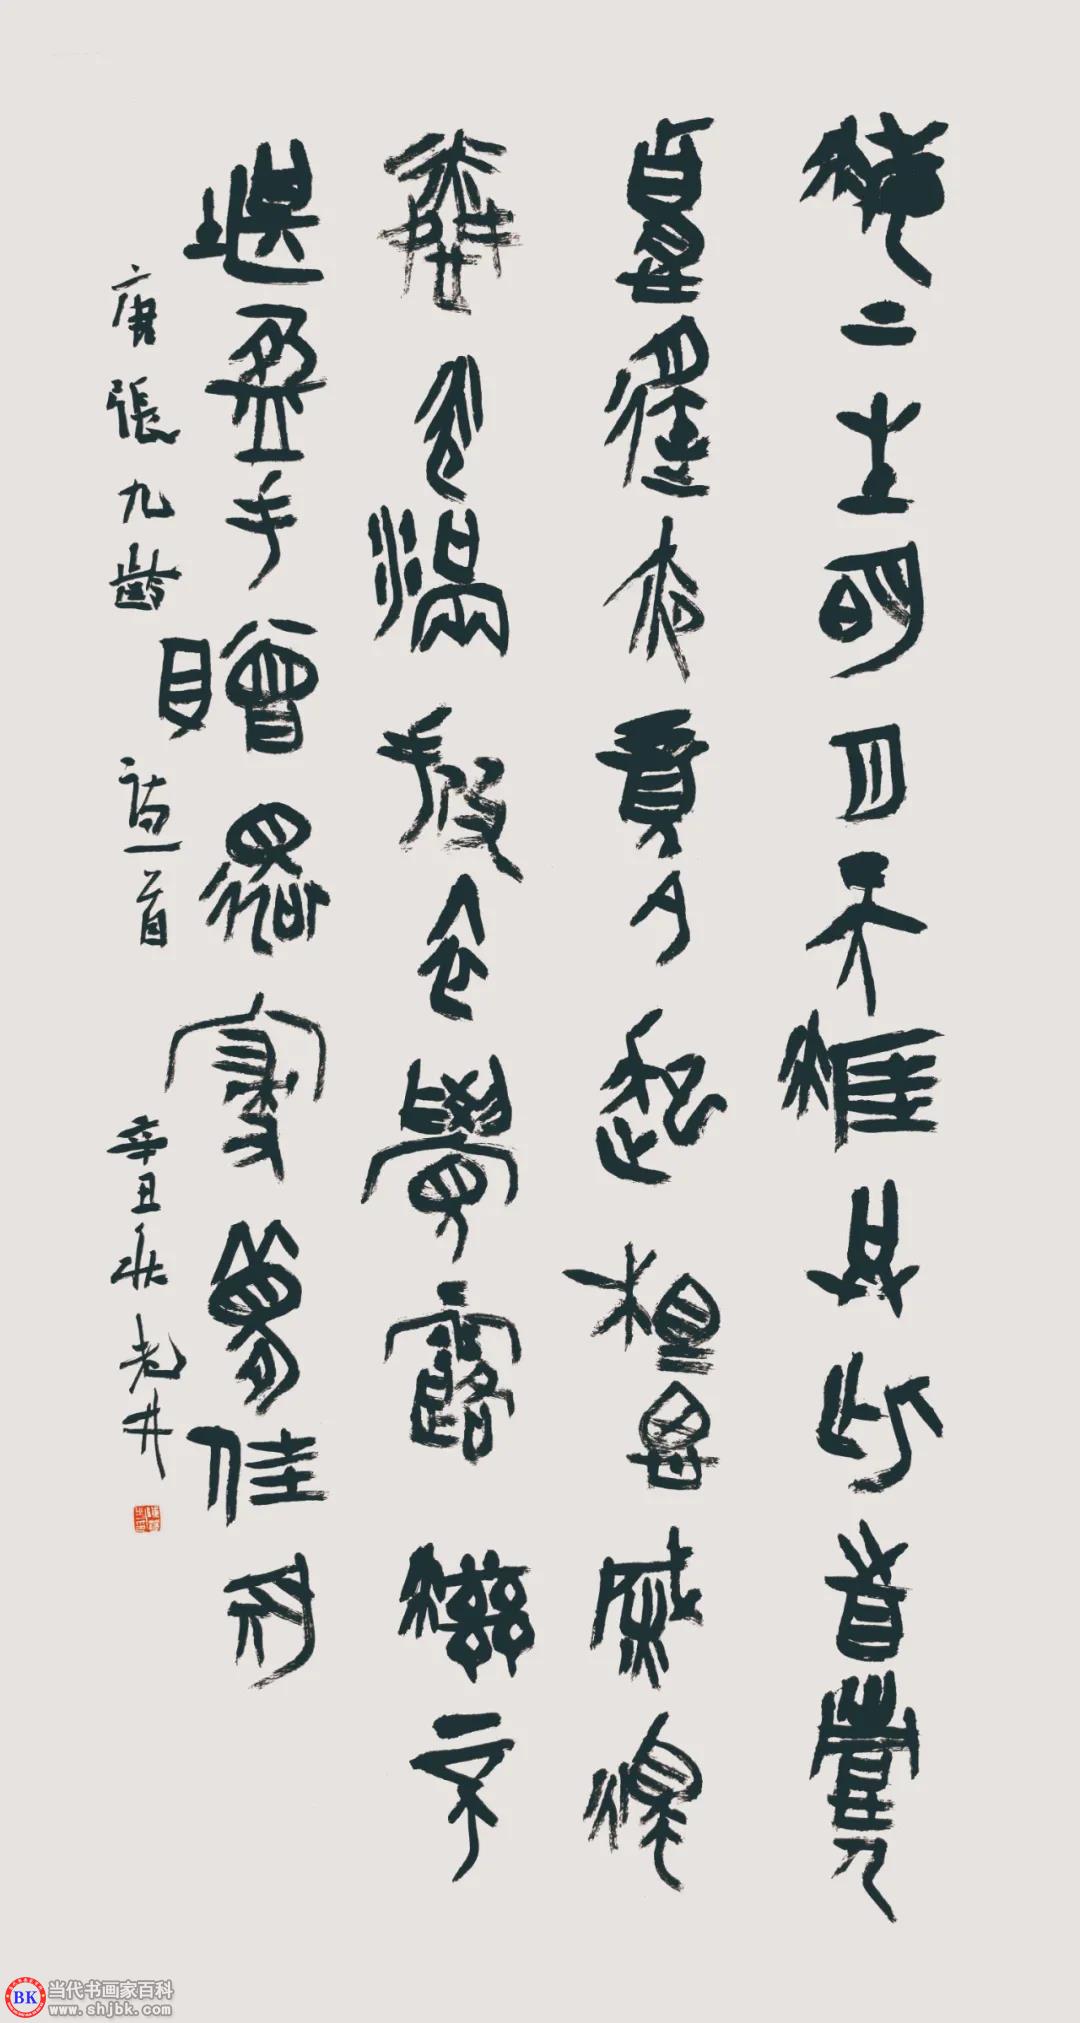 海上生明月天涯共此時情人
怨遙夜竟夕起相思滅燭
憐光滿披衣覺露滋不
堪盈手贈還寢夢佳期
唐張九齡詩一首 辛丑秋老井
BK 当代书画家百科
www.shjbk.com